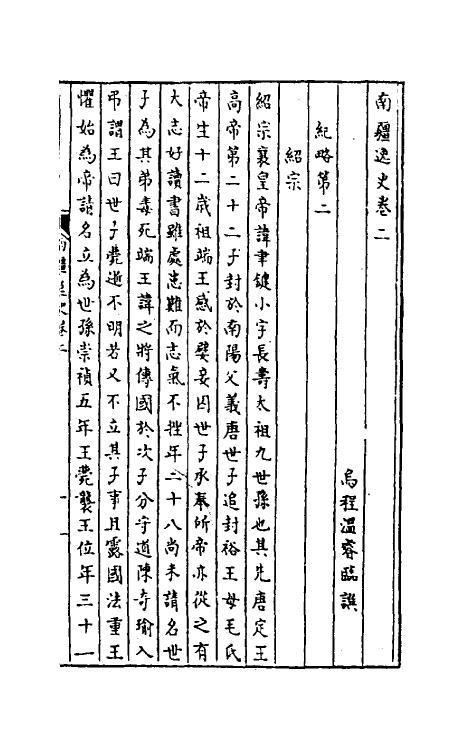 南疆逸史卷二
烏程溫睿臨譔
紀略第二
紹宗
紹宗襄皇帝諱聿鍵小字長壽太祖九世孫也其先唐定王
高帝第二十二子封於南陽父義唐世子追封裕王母毛氏
帝生十二歲祖端王惑於嬖妾囚世子承奉所帝亦從之有
大志好讀書雖處患難而志氣不挫年二十八尚未請名世
子為其弟毒死端王諱之將傳國於次子分守道陳奇瑜入
弔謂王曰世子薨逝不明若又不立其子事且露國法重王
懼始為帝請名立為世孫崇禎五年王薨襲王位年三十一
南疆逸史卷二
一